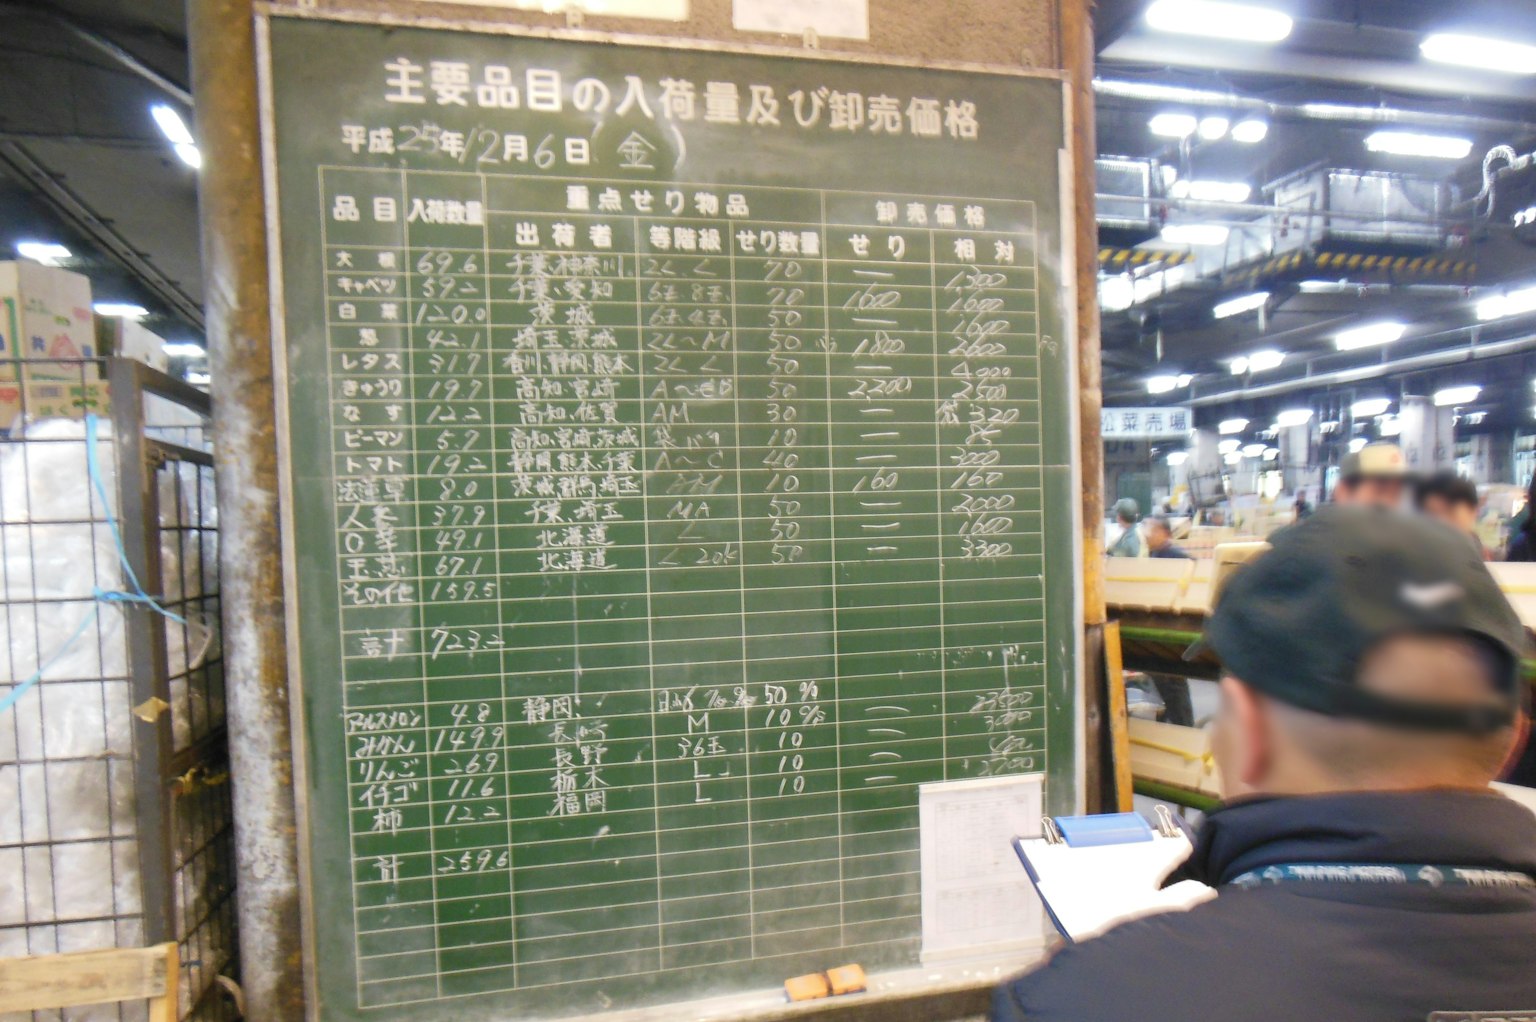 主要品目の入荷量及び卸売価格
平成25年12月6日(金)
品目 入荷数量 重点せり物品 卸売価格
出荷者 等階級 せり数量 せり 相対
大根 69.6 千葉、神奈川 2L.L 70 — 1,300
キャベツ 59.2 千葉、愛知 6玉.8玉 70 1600 1600
白菜 120.0 茨城 50 — 1600
葱 42.1 埼玉、茨城 2L〜M 50 1800 2600
レタス 31.7 香川、静岡、熊本 2L L 50 — 4,000
きゅうり 19.7 高知、宮崎 50 2,200 2500
なす 12.2 高知、佐賀 AM 30 — 袋 320
ピーマン 5.7 高知、宮崎、茨城 10 —
トマト 19.2 静岡、熊本、千葉 A〜C 40 — 3000
法蓮草 8.0 茨城、群馬、埼玉 AM 10 160 160
人参 37.9 千葉、埼玉 MA 50 — 2000
49.1 北海道 L 50 — 1600
玉葱 67.1 北海道 L 20k 50 — 3300
その他 159.5
計 723.2
アールスメロン 4.8 静岡、 50% — 23500
みかん 149.9 長崎 M 10% — 3000
りんご 269 長野 36玉 10 —
イチゴ 11.6 栃木 L 10 — 2700
柿 12.2 福岡 L 10
計 2596
松菜売場